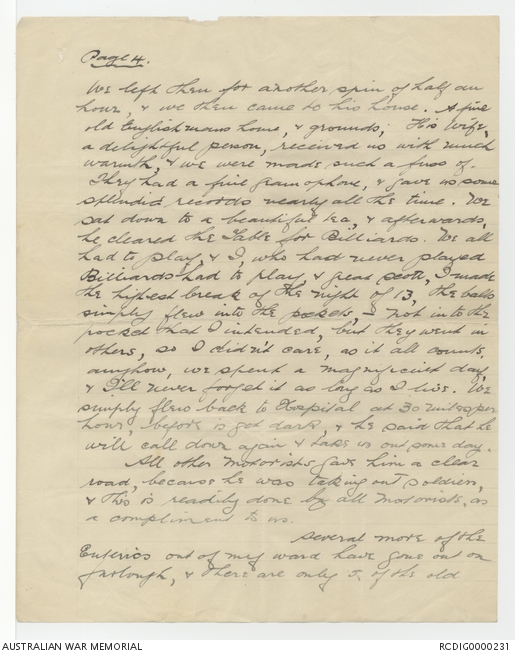 Page 4.
We left then for another spin of half an
hour, & we then came to his house. A fine
old Englishmans home, & grounds; His Wife,
a delightful person, received us with much
warmth, & we were made such a fuss of.
They had a fine gramophone, & gave us some
splendid records nearly all the time. We
sat down to a beautiful tea, & afterwards,
he cleared the table for Billiards. We all
had to play, & I, who had never played
Billiards had to play, & great scott, I made
the highest break of the night of 13, the balls
simply flew into the pockets, not into the
pocket that I intended, but they went in
others, so I didn't care, as it all counts,
anyhow, we spent a magnificent day,
& I'll never forget it as long as I live. We
simply flew back to Hospital at 30 miles per
hour, before it got dark, & he said that he
will call down again & take us out some day.
All other motorists gave him a clear
road, because he was taking out soldiers,
& this is readily done by all motorists, as
a compliment to us.
Several more of the
Enterics out of my ward have gone out on
furlough, & there are only 5, of the old
AUSTRALIAN WAR MEMORIAL
RCDIG0000231